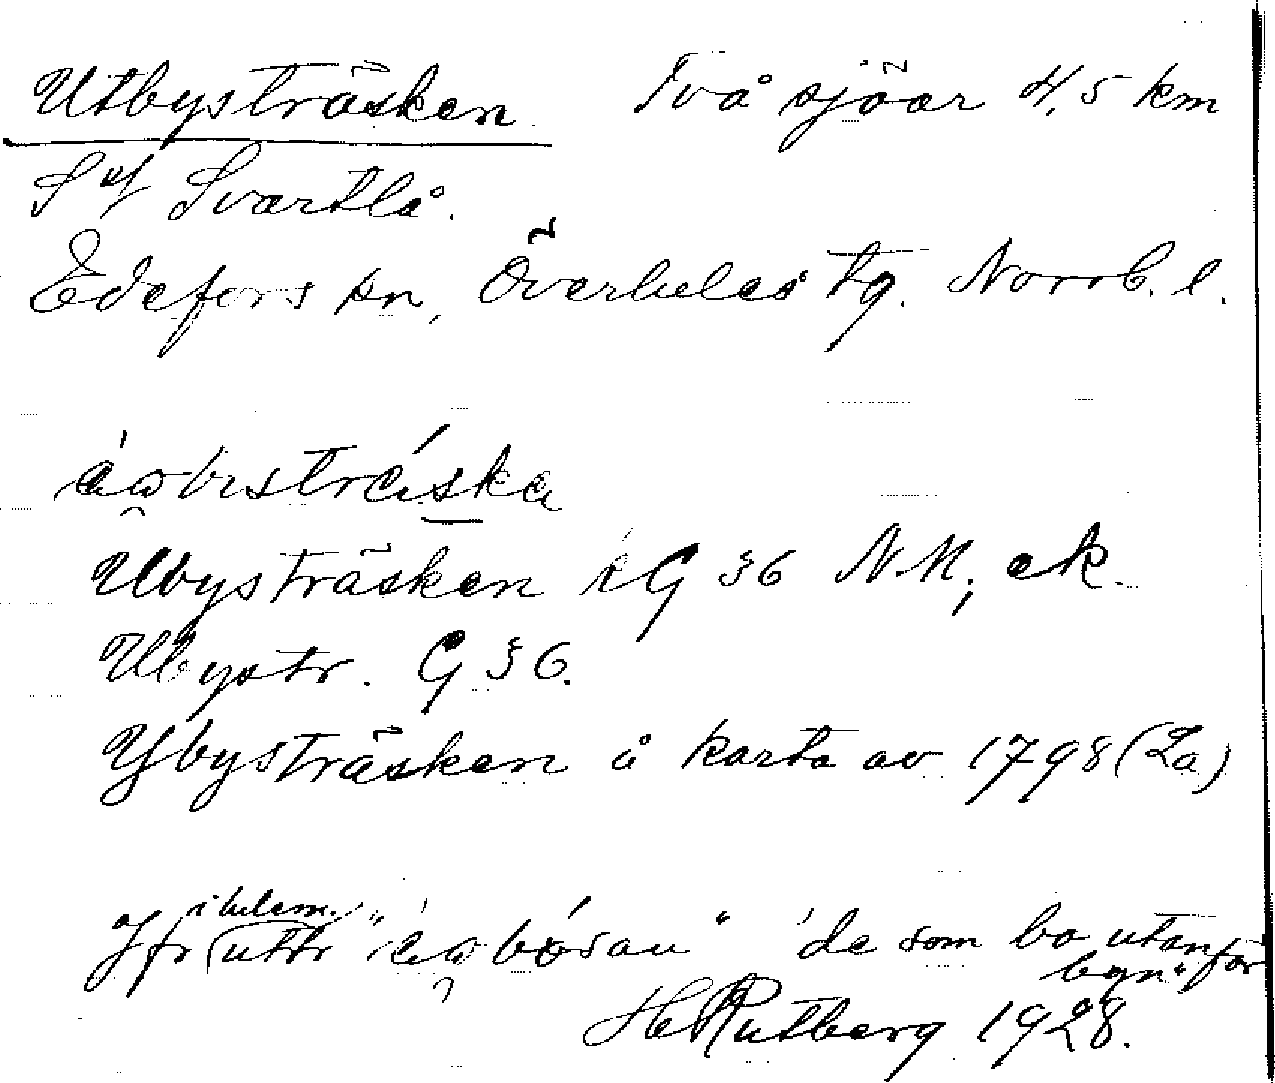 Utbysträsken Två sjöar 4,5 km
S of Svartlå.
Edefors sn, Överluleå tg. Norrb. l.
Ubysträsken i G §6 NM, ek.
Ubystr. G §6.
Ybysträsken å karta av 1798 (La)
Jfr uttr i lulem. " " 'de som bo utanför byn'
H Rutberg 1928.